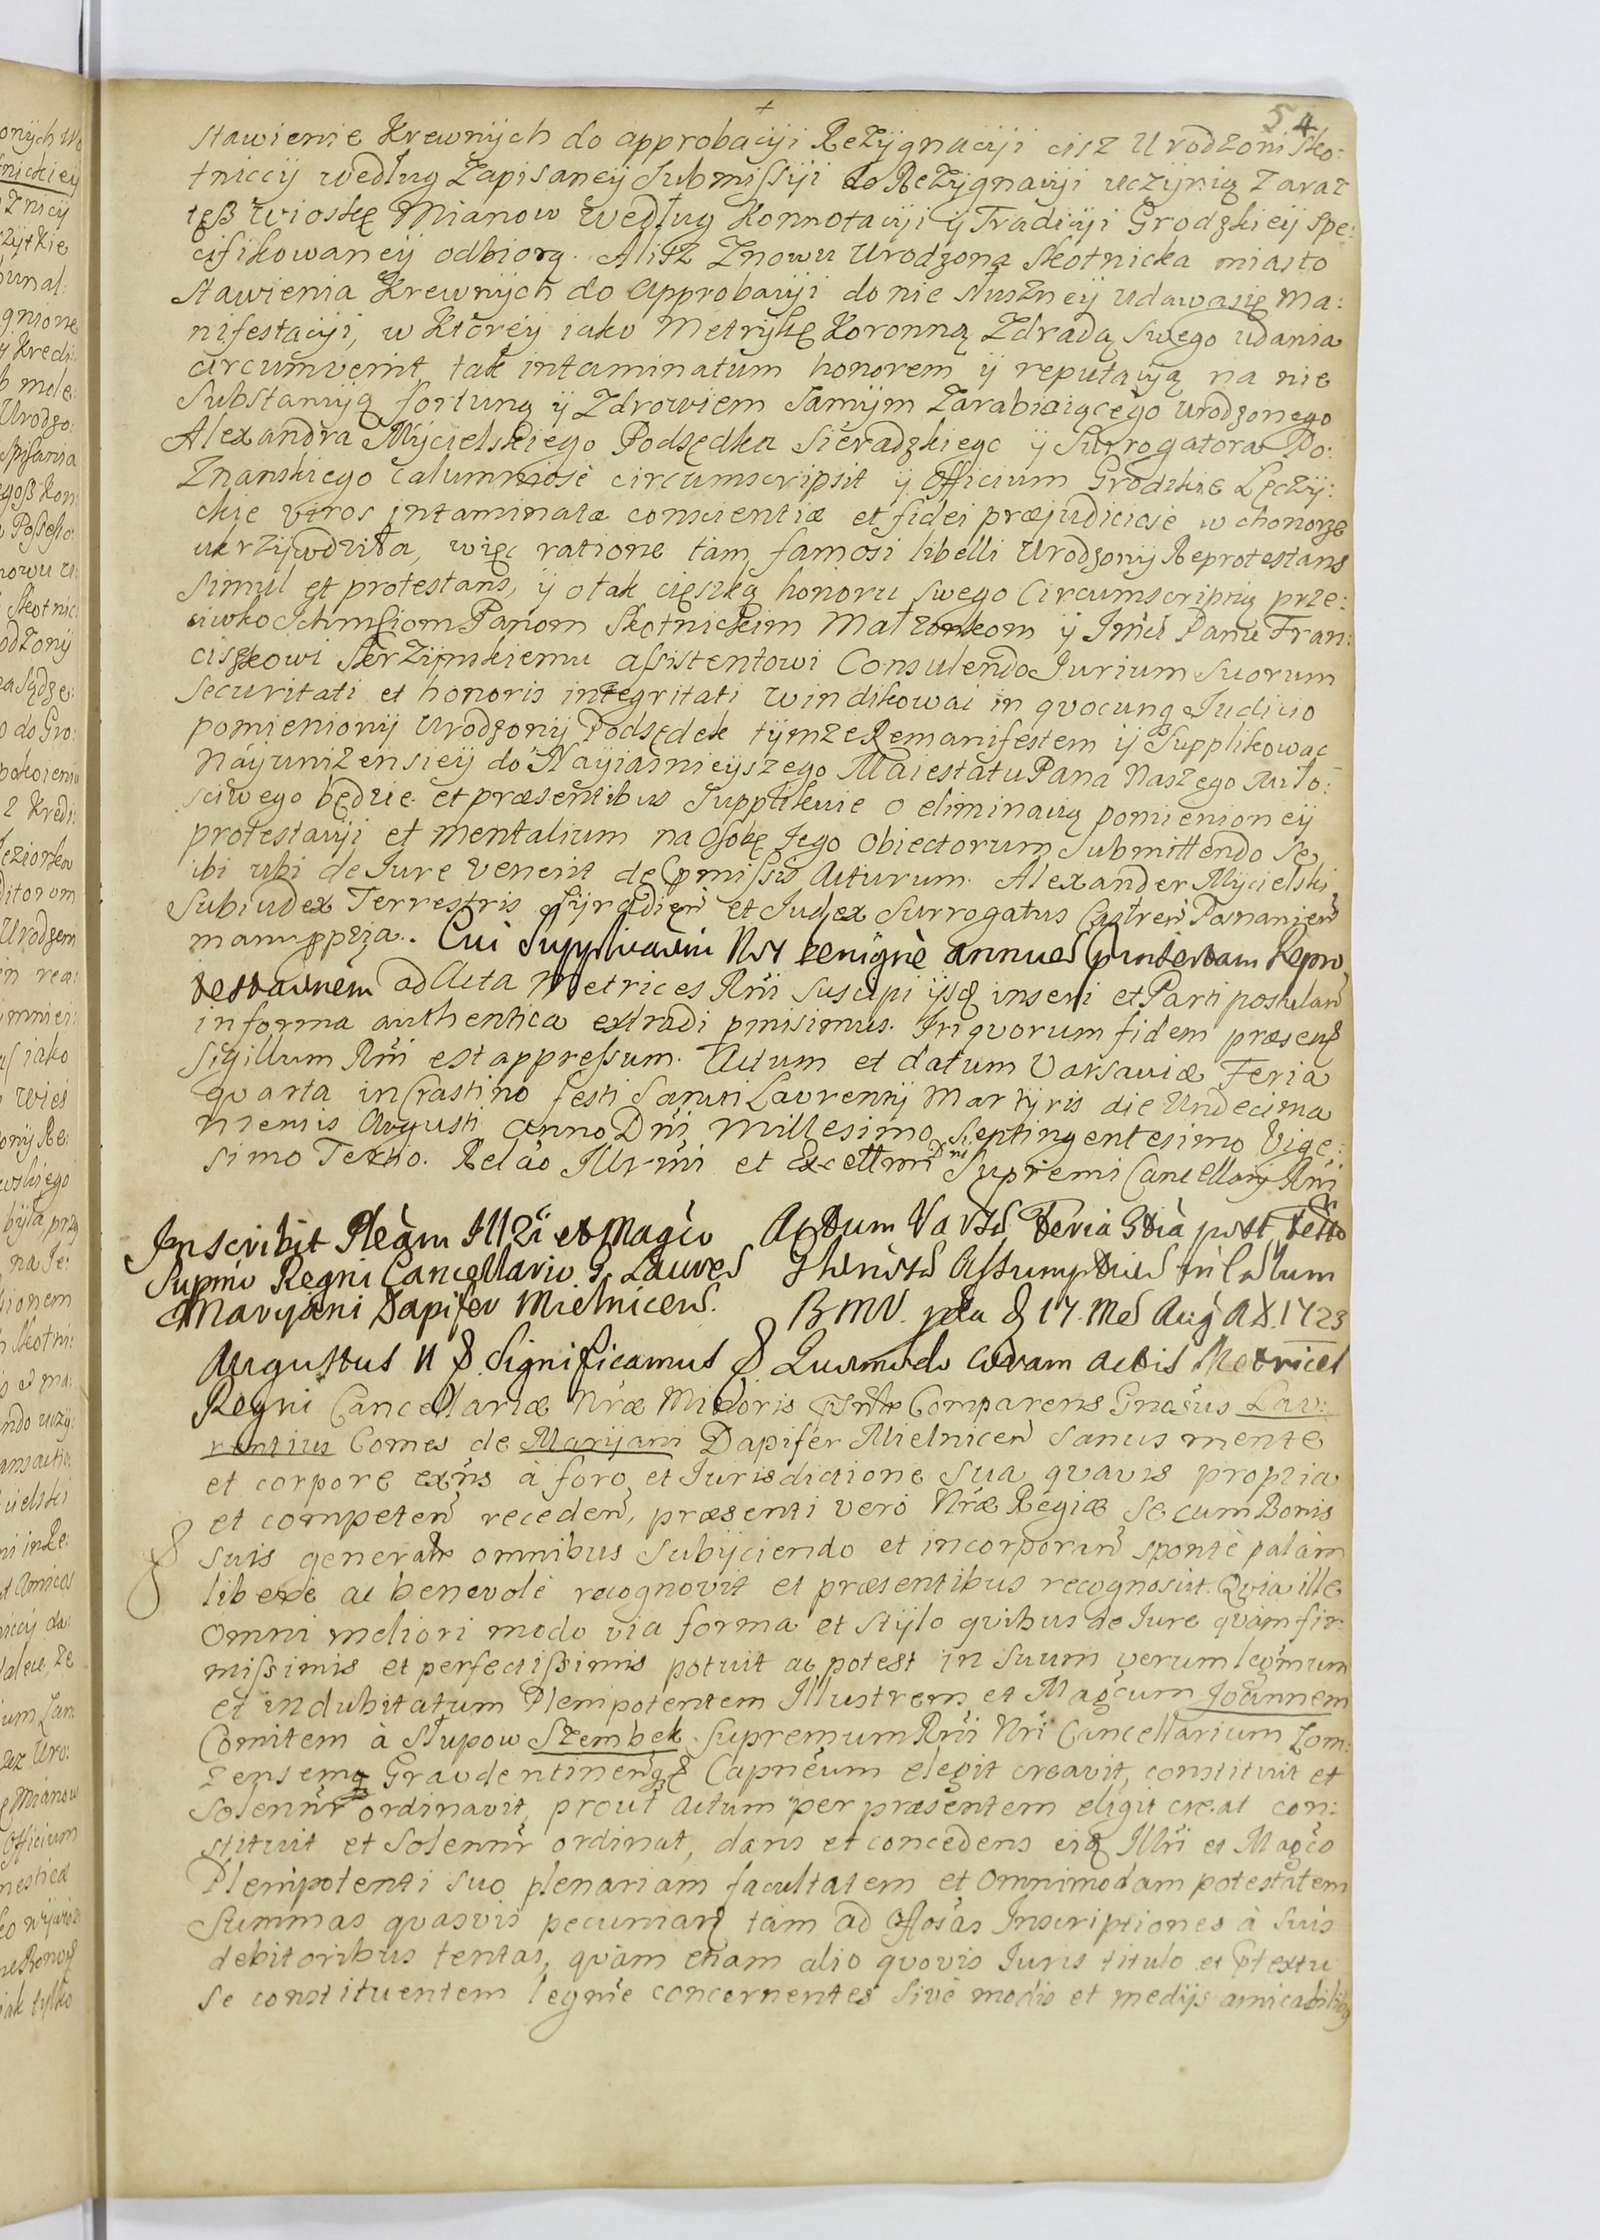 54
stawienie Krewnÿch do approbacÿi Rezÿgnacÿi cisz Urodzoni Sko:
tniccÿ według Zapisaneÿ Submissÿi do Rezÿgnacÿi uczÿnią zaraz
tęß wioskę Mianow według Konnotacÿi ÿ Tradicÿi Grodzkieÿ spe:
cifikowaneÿ odbiorą. Alisz Znowu Urodzona Skotnicka miasto
Stawienia Krewnÿch do Approbacÿi do nie słuszneÿ udawasię ma:
nifestacÿi, w Któreÿ iako Metrÿkę Koronną Zdradą swego udania
circumvenit tak intaminatum honorem ÿ reputacÿą na nie
Substancÿą fortuną ÿ Zdrowiem samÿm Zarabiaiącego urodzonego
Alexandra Mÿcielskiego Podsędka Sieradzkiego ÿ Surrogatora Po:
Znanskiego calumniosè circumscripsit ÿ Officium Grodzkie Lęczÿ:
ckie viros intaminatæ conscientiæ et fidei præjudiciosè w chonorze
ukrzÿwdziła, więc ratione tàm famosi libelli Urodzonÿ Reprotestans
simul et protestans, ÿ otak cięszką honoru swego Circumscriptią prze:
ciwko Ichmsciom Panom Skotnickim Małzonkom ÿ Imci Panu Fran:
ciszkowi Skrzÿnskiemu assistentowi Consulendo Iurium suorum
securitati et honoris integritati windikowac in quocunq Iudicio
pomienionÿ Urodzonÿ Podsędek tÿmze Remanifestem ÿ Supplikowac
Naÿunizensieÿ do Naÿiasnieÿszego Maiestatu Pana Naszego Miło:
sciwego będzie. et præsentibus Supplikuie o eliminacÿą pomienioneÿ
protestacÿi et mentalium na Osobę Iego obiectorum submittendo se
ibi ubi de Iure venerit de pmissis Acturum. Alexander Mÿcielski
Subiudex Terrestris Sÿradien et Iudex Surrogatus Castren Posnanien
manu ppria. Cui Supplicaoni Nos benignè annuen pinsertam Repro
testaonem ad Acta Metrices Rni suscipi ijsq inseri et Parti postulan
in forma authentica extradi pmisimus. In quorum fidem præsens
Sigillum Rni est appressum. Actum et datum Varsaviæ Feria
quarta in Crastino festi Sancti Laurentij Martÿris die Undecima
Mensis Augusti Anno Dni Millesimo Septingentesimo Vige:
simo Tertio. Relao Illrmi et Excellmi Dni Supremi Cancellarij Rni
Inscribit Pleàm Illri et Magco
Supmo Regni Cancellario G. Lauren
Maryani Dapifer Mielnicen.
Actum Vars. Feria 3tia post Festo
Assumptnis in Cælum
BMV. die 17. Mes Aug A D. 1723
Augustus II & Significamus & Quomodo coram Actis Metrices
Regni Cancellariæ Nræ Minoris psnlr Comparens Gnosus Lau:
rentius Comes de Maryani Dapifer Mielnicen Sanus mente
et corpore exns à foro et Iurisdictione sua quavis propria
et competen receden, præsenti verò Nræ Regiæ se cum Bonis
suis generalr omnibus subijciendo et incorporan spontè palàm
liberè ac benevolè recognovit et præsentibus recognoscit. Quia ille
omni meliori modo via forma et stÿlo quibus de Iure quàm fir:
missimis et perfectissimis potuit ac potest in suum verum legmum
et indubitatum Plenipotentem Illustrem et Magcum Joannem
Comitem à Słupow Szembek Supremum Rni Nri Cancellarium Lom:
zensemq Graudentinensq Capneum elegit creavit, constituit et
solennr ordinavit, prout Actum per præsentem eligit creat con:
stituit et solennr ordinat, dans et concedens eidq Illri et Magco
Plenipotenti suo plenariam facultatem et omnimodam potestatem
Summas quasvis pecuniar tàm ad Inscriptiones à suis
debitoribus tentas, quàm etiam alio quovis Iuris titulo et ptextu
se constituentem legme concernentes sivè modis et medijs amicabilibus